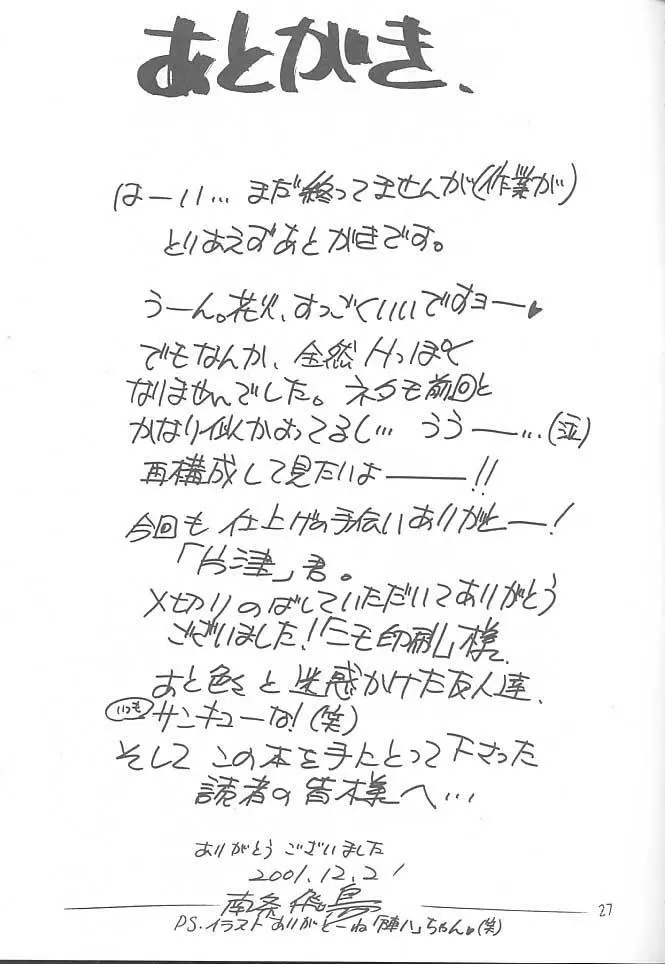 あとがき、
はーい… まだ終ってませんが(作業が)
とりあえずあとがきです。
うーん。花火、すっごくいいですョー♥
でもなんか、全然Hっぽく
なりませんでした。ネタも前回と
かなり似かよってるし… うぅー…(泣)
再構成して見たいよー!!
今回も 仕上げの手伝いありがとー!
「片津」君。
〆切りのばしていただいてありがとう
ございました!「三毛印刷」様。
あと色々と迷惑かけた友人達、
いつもサンキューな!(笑)
そして この本を手にとって下さった
読者の皆様へ…
ありがとう ございました
2001.12.21
南条飛鳥
27
PS.イラスト ありがとーね「陣八」ちゃん♥(笑)